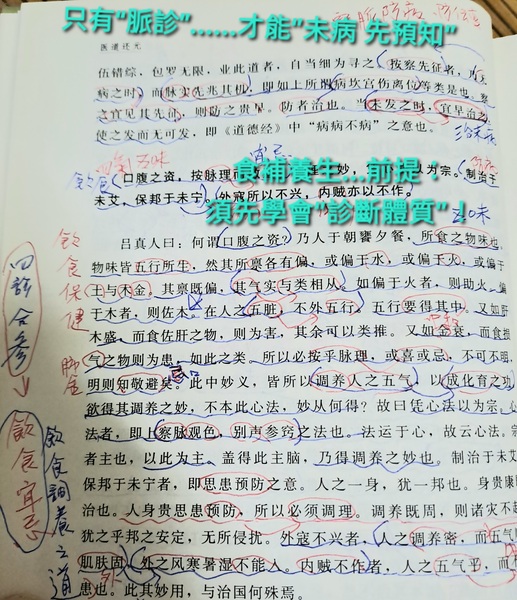 只有"脈診"......才能"未病 先預知"
医道还元
伍错综,包罗无限,业此道者,自当细为寻之(按察先征者,乃
病之时)而脉实先兆其机,即如上所谓病坎宫伤离位等类是也,察
之宜见其先征,则防之贵早。防者治也。当未发之时,宜早治之
使之发而无可发,即《道德经》中"病病不病"之意也。
食補養生...前提:
須先學會"診斷體質"!
飲食
口腹之资,按脉理而
妙,
认为宗。制治于
未艾,保邦于未宁。外寇所以不兴,内贼亦以不作。
吕真人曰:何谓口腹之资?乃人于朝饔夕餐,所食之物味也
物味皆五行所生,然其所禀各有偏,或偏于水,或偏于火,或偏于
土与木金,其禀既偏,其气实与类相从。如偏于火者,则助火,偏
于木者,则佐木。在人之五脏,不外五行。五行要得其中。又如肝
木盛,而食佐肝之物,则为害,其余可以类推。又如金衰,而食损
气之物则为患,如此之类。所以必按乎脉理,或喜或忌,不可不明,
明则知敬避矣。此中妙义,皆所以调养人之五气,以成化育之功
欲得其调养之妙,不本此心法,妙从何得?故曰凭心法以为宗,心
法者,即上察脉观色,别声参窍之法也。法运于心,故云心法。宗
者主也,以此为主。盖得此主脑,乃得调养之妙也。制治于未艾
保邦于未宁者,即思患预防之意。人之一身,犹一邦也。身贵康
治也。人身贵思患预防,所以必须调理。调养既周,则诸灾不起
犹之乎邦之安定,无所侵扰。外寇不兴者,人之调养密,而五气
肌肤固,外之风寒暑湿不能入。内贼不作者,人之五气平,而
患也。此其妙用,与治国何殊焉。
飲食保健
四診合參
飲食宜忌
飲食調養之道